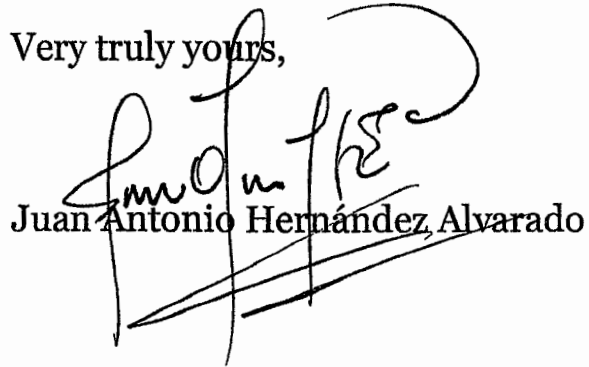 Very truly yours,
Juan Antonio Hernández Alvarado